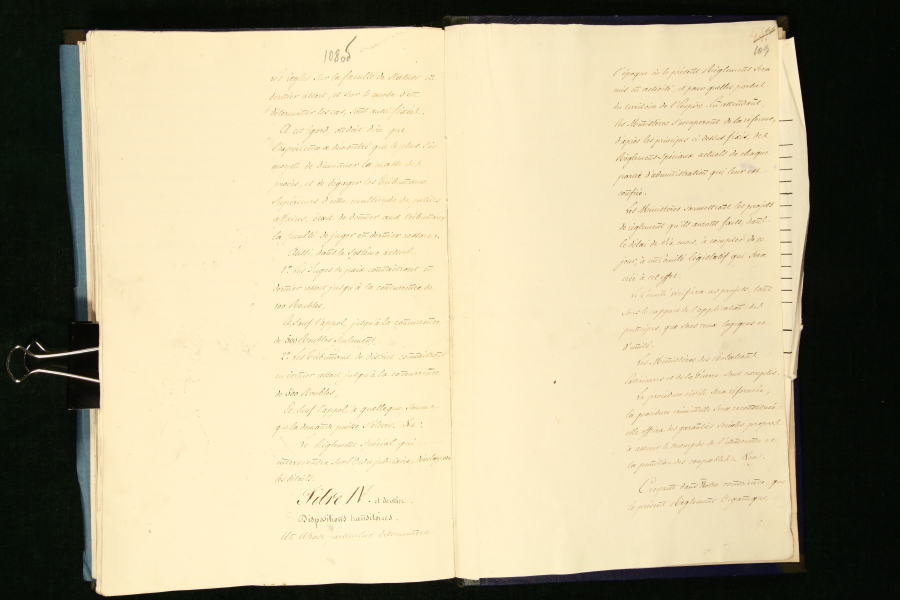 108
ces règles sur la faculté de statuer en
dernier ressort, et sur le mode d'en
déterminer les cas, sont aussi fixées.
A cet égard, on doit dire que
l'expérience a démontré que le plus sûr
moyen de diminuer la masse des
procès, et de dégager les tribunaux
supérieurs d'une multitude de petites
affaires, était de donner aux tribunaux
la faculté de juger en dernier ressort.
dans le système actuel.
1° les Juges de paix connaîtront en
dernier ressort jusqu'à la concurrence de
100 Roubles.
Et sauf l'appel, jusqu'à la concurrence
de 300 Roubles seulement.
2° Les tribunaux de district connaîtront
en dernier ressort jusqu'à la concurrence
de 500 Roubles.
Et sauf l'appel, à quelque somme
que la demande puisse s'élever. &a.
Un Règlement spécial qui
interviendra sur l'Ordre judiciaire,
les détails.
Titre IV. et dernier.
Dispositions transitoires.
Un Ukase particulier déterminera
109
l'époque où le présent Règlement sera
mis en activité, et pour quelles parties
du territoire de l'Empire. En attendant,
les Ministères s'occuperont de la réforme,
d'après les principes ci-dessus fixés, des
Règlements spéciaux actuels de chaque
partie d'administration qui leur est
confiée.
Les Ministères soumettront les projets
de règlement qu'ils auront faits, dans
le délai de six mois, à compter de ce
jour, à un Comité législatif qui sera
créé à cet effet.
Ce Comité vérifiera ces projets, tant
sous le rapport de l'application des
principes, que sous ceux logiques et
d'unité.
Les Ministères des Relations
Extérieures et de la Guerre sont exceptés.
La procédure civile sera réformée,
la procédure criminelle sera reconstituée
elle offrira les garanties sociales propres
à assurer le triomphe de l'innocence et
la punition des coupables. &a.
Croyant dans Notre conscience, que
le présent Règlement Organique